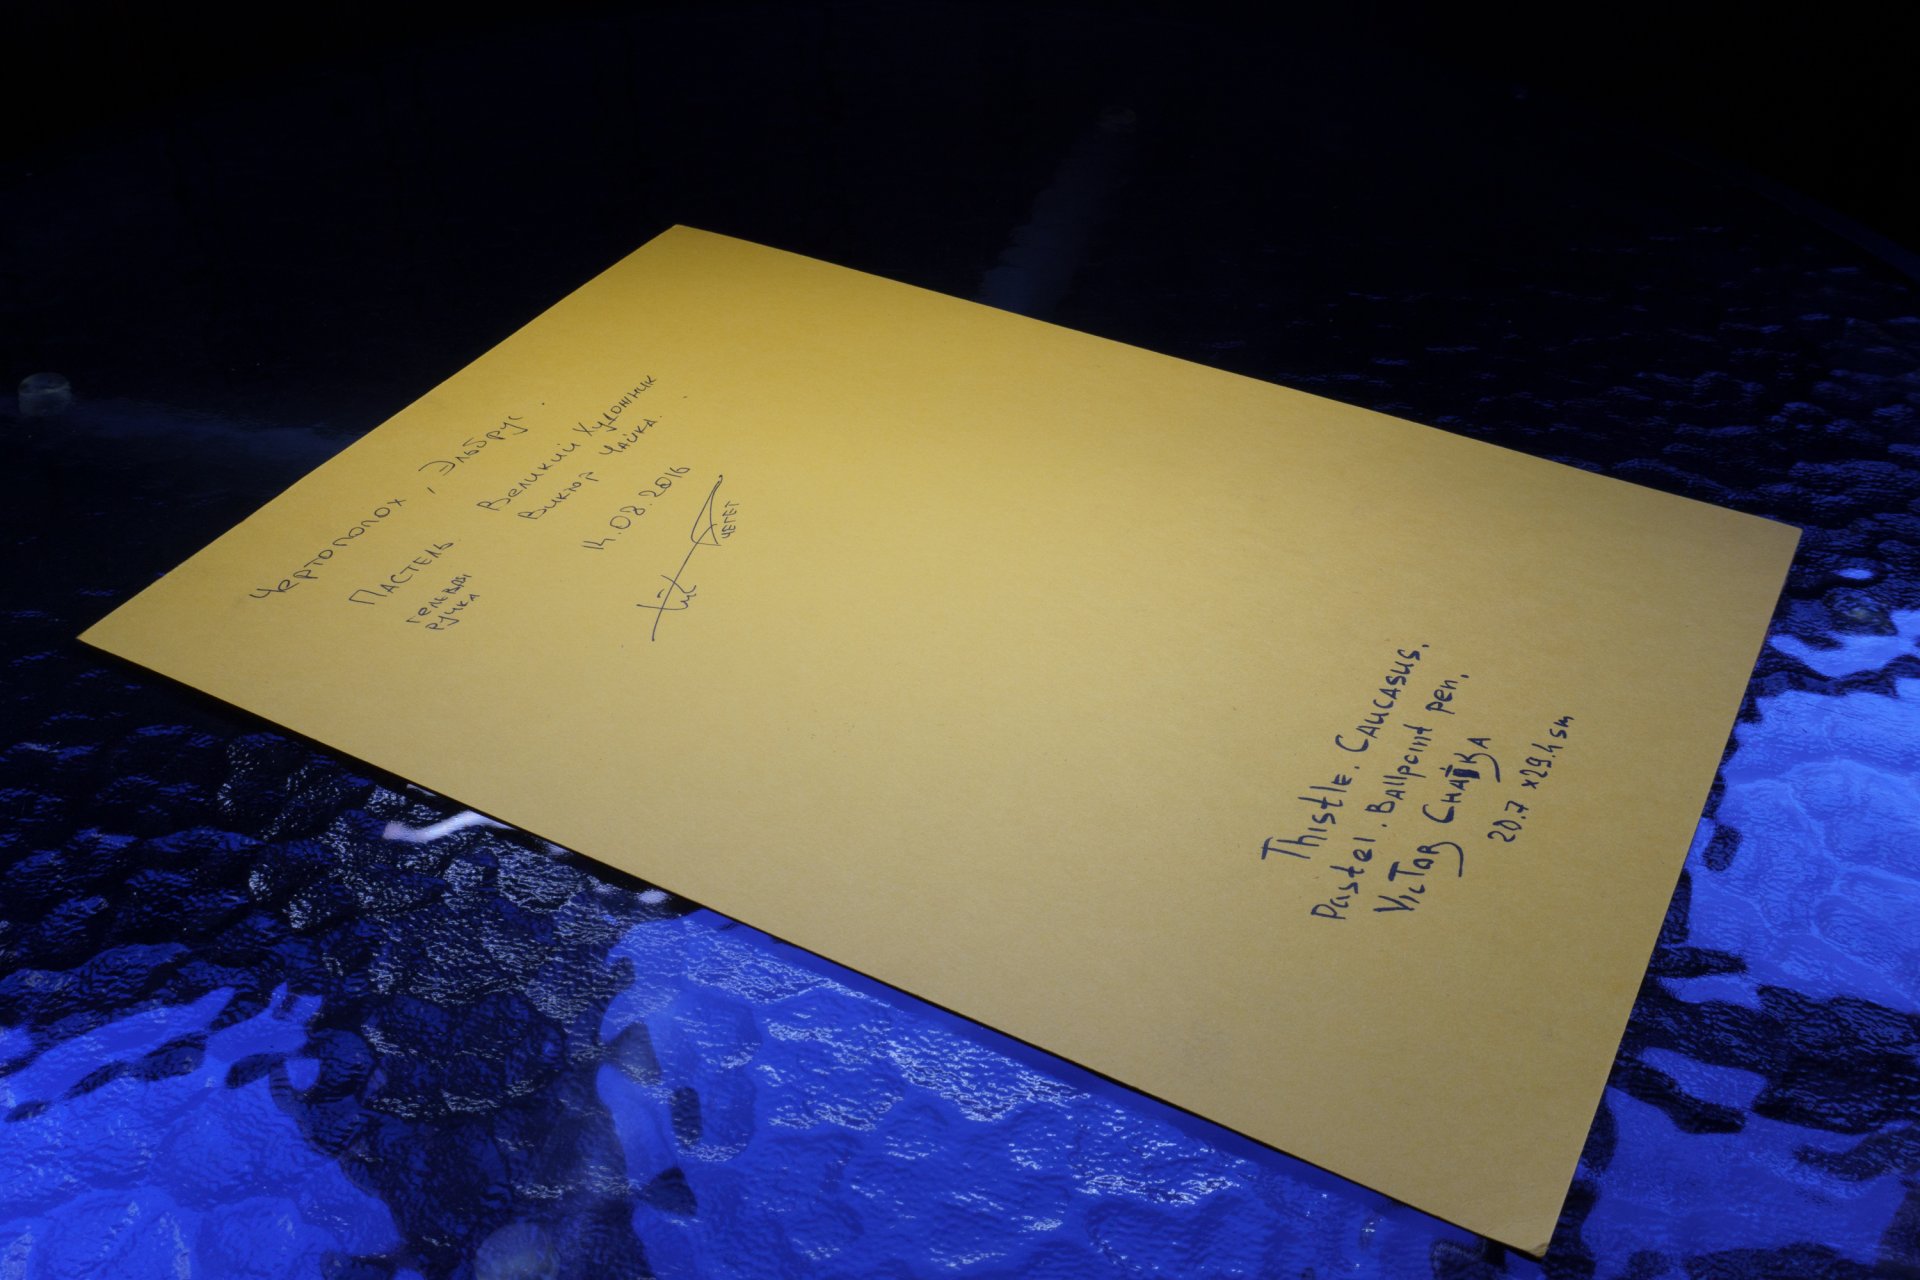 Чертополох, Эльбрус.
Пастель.
гелевая
ручка
Великий Художник
Виктор Чайка.
14.08.2016
ЧЕГЕТ
Thistle. Caucasus.
Pastel. Ballpoint pen.
Victor Chaika
20.7 x 29.4 sm